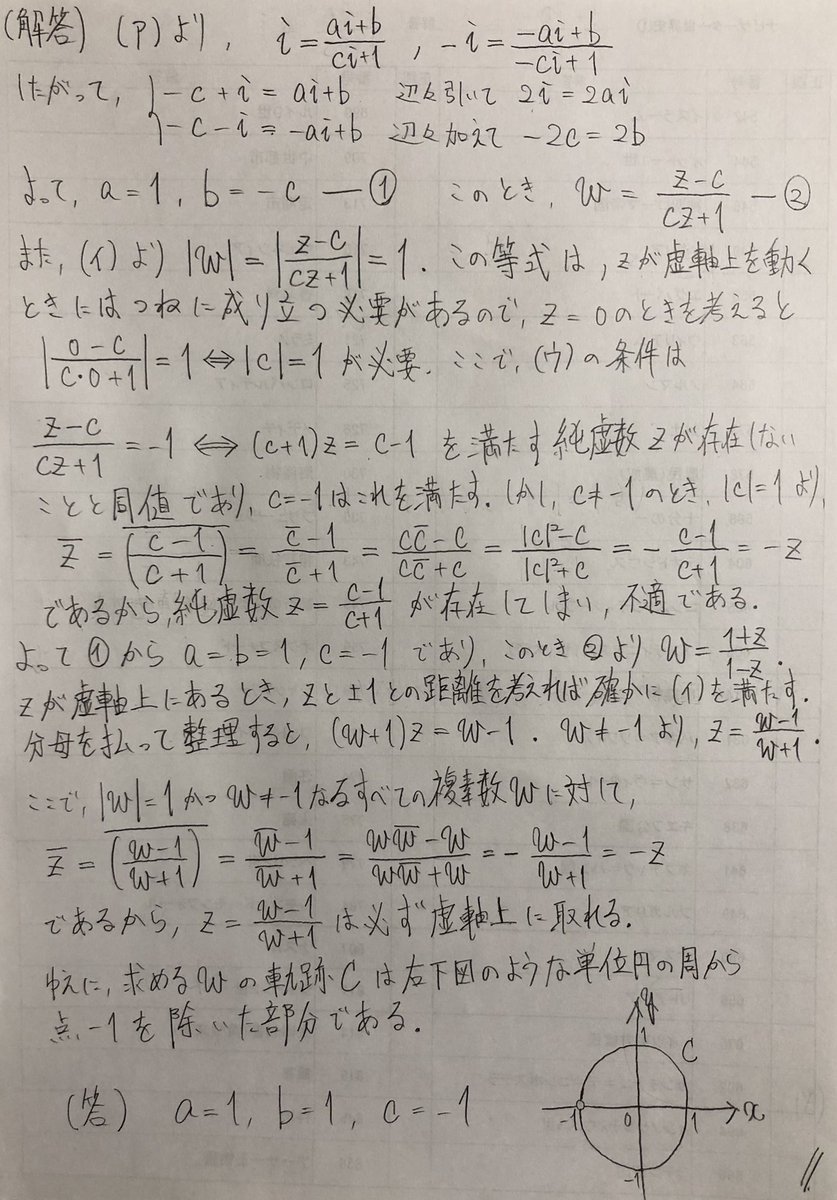 (解答) (ア)より, i = (ai+b)/(ci+1), -i = (-ai+b)/(-ci+1)
したがって, { -c+i = ai+b 辺々引いて 2i = 2ai
-c-i = -ai+b 辺々加えて -2c = 2b
よって, a=1, b=-c —① このとき, w = (z-c)/(cz+1) —②
また, (イ)より |w| = |(z-c)/(cz+1)| = 1. この等式は, zが虚軸上を動く
ときにはつねに成り立つ必要があるので, z=0のときを考えると
|(0-c)/(c・0+1)| = 1 ⇔ |c|=1 が必要. ここで, (ウ)の条件は
(z-c)/(cz+1) = -1 ⇔ (c+1)z = c-1 を満たす純虚数zが存在しない
ことと同値であり, c=-1はこれを満たす. しかし, c≠-1のとき, |c|=1より,
z̅ = \overline{((c-1)/(c+1))} = (c̅-1)/(c̅+1) = (cc̅-c)/(cc̅+c) = (|c|²-c)/(|c|²+c) = -(c-1)/(c+1) = -z
であるから, 純虚数 z = (c-1)/(c+1) が存在してしまい, 不適である.
よって①から a=b=1, c=-1 であり, このとき②より w = (1+z)/(1-z).
zが虚軸上にあるとき, zと±1との距離を考えれば確かに(イ)を満たす.
分母を払って整理すると, (w+1)z = w-1. w≠-1より, z = (w-1)/(w+1).
ここで, |w|=1かつw≠-1なるすべての複素数wに対して,
z̅ = \overline{((w-1)/(w+1))} = (w̅-1)/(w̅+1) = (ww̅-w)/(ww̅+w) = -(w-1)/(w+1) = -z
であるから, z = (w-1)/(w+1) は必ず虚軸上に取れる.
ゆえに, 求めるwの軌跡Cは左下図のような単位円の周から
点-1を除いた部分である.
(答) a=1, b=1, c=-1
y
1
C
-1
0
1
x
-1